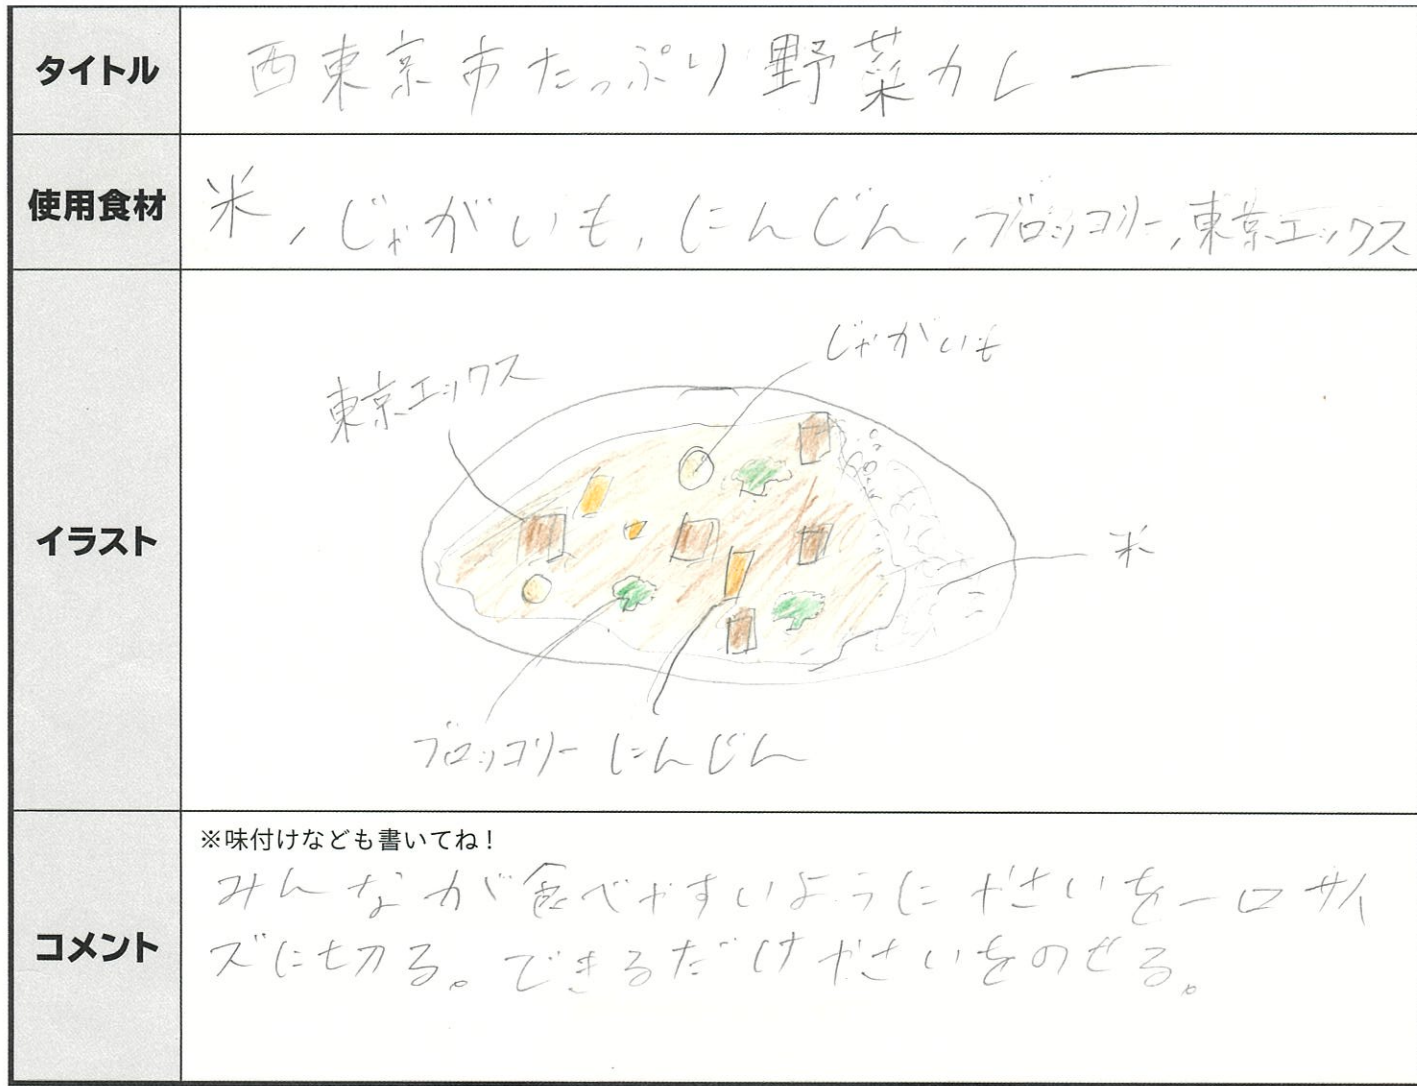 タイトル
西東京市たっぷり野菜カレー
使用食材
米,じゃがいも,にんじん,ブロッコリー,東京エックス
イラスト
じゃがいも
東京エックス
米
ブロッコリー にんじん
コメント
※味付けなども書いてね!
みんなが食べやすいようにやさいを一口サイ
ズに切る。できるだけやさいをのせる。